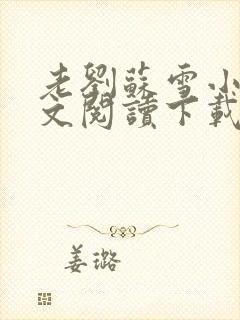 老劉蘇雪小
文閱讀下載
姜璐